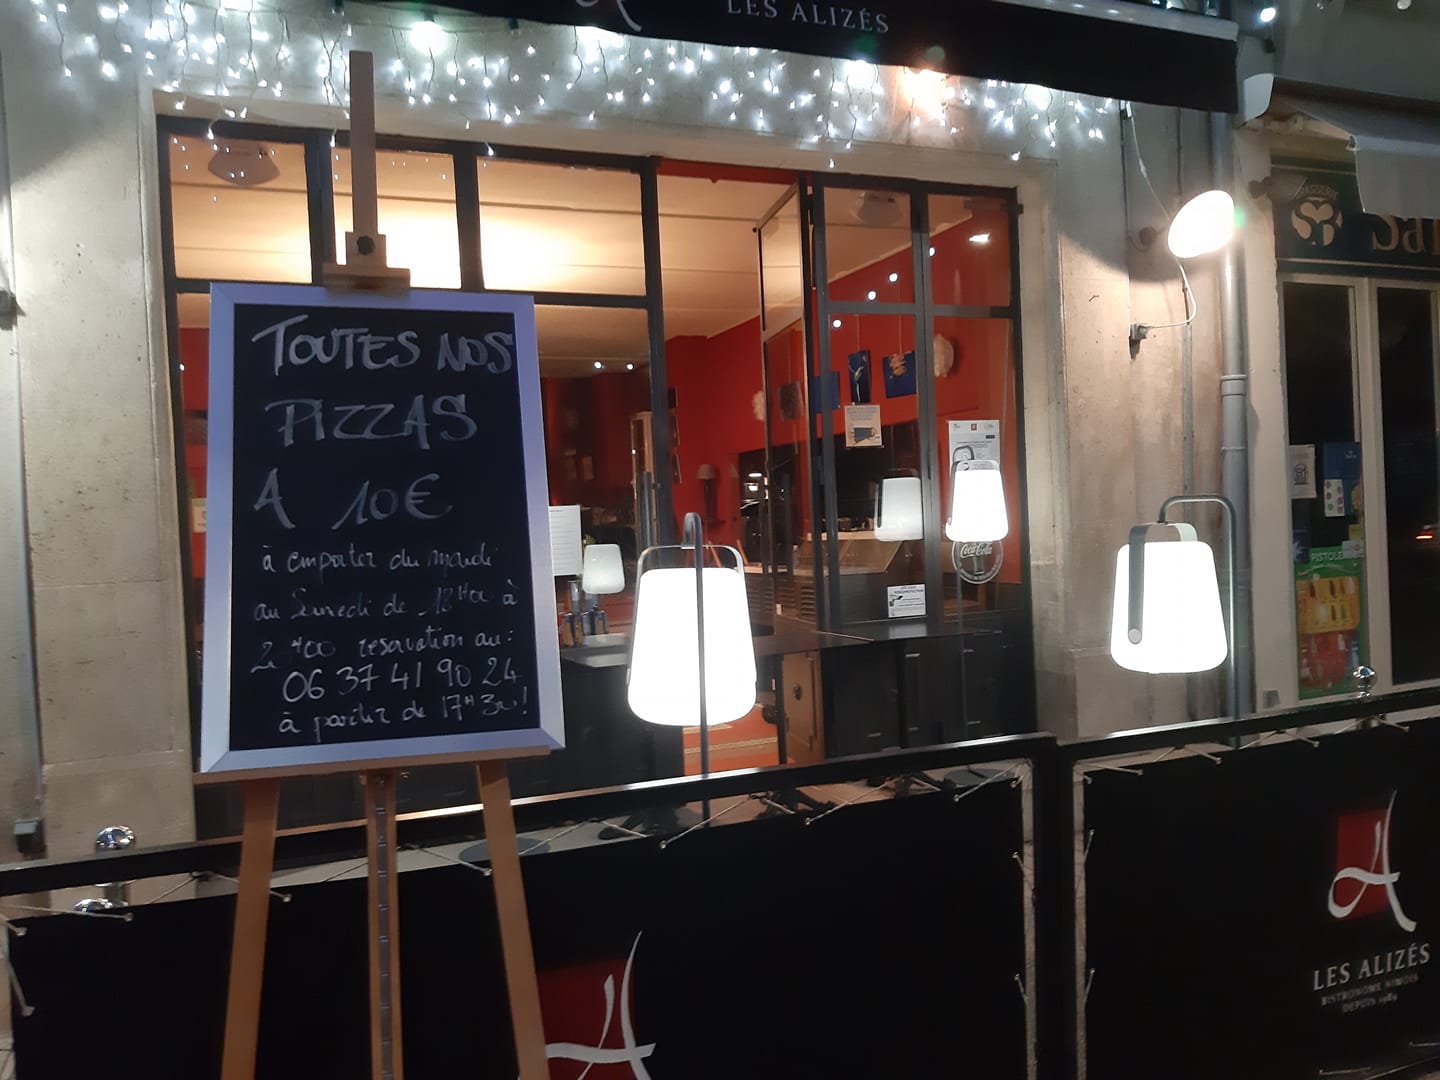 LES ALIZÉS
TOUTES NOS
PIZZAS
A 10€
à emporter du mardi
au Samedi de 18H00 à
2 H00 reservation au:
06 37 41 90 24
à partir de 17H30!
Coca-Cola
BRASSERIE
PISTOLE
LES ALIZÉS
BISTRONOME NIMOIS
DEPUIS 1989